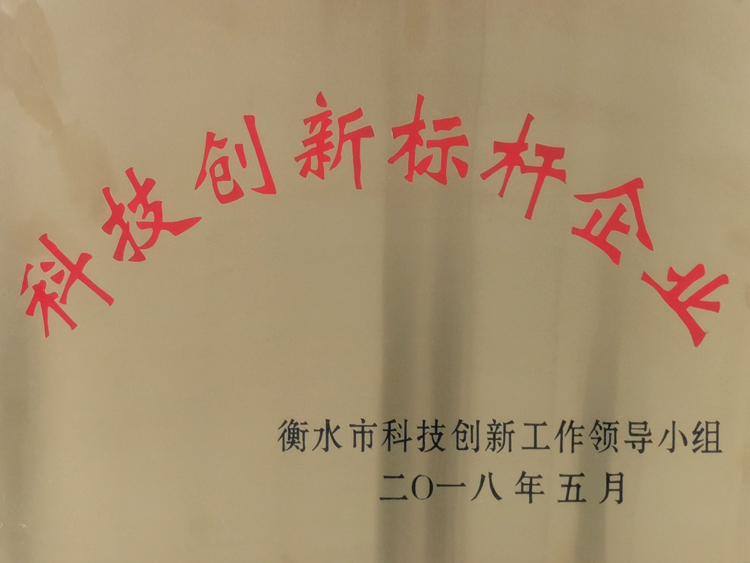 科技创新标杆企业
衡水市科技创新工作领导小组
二〇一八年五月